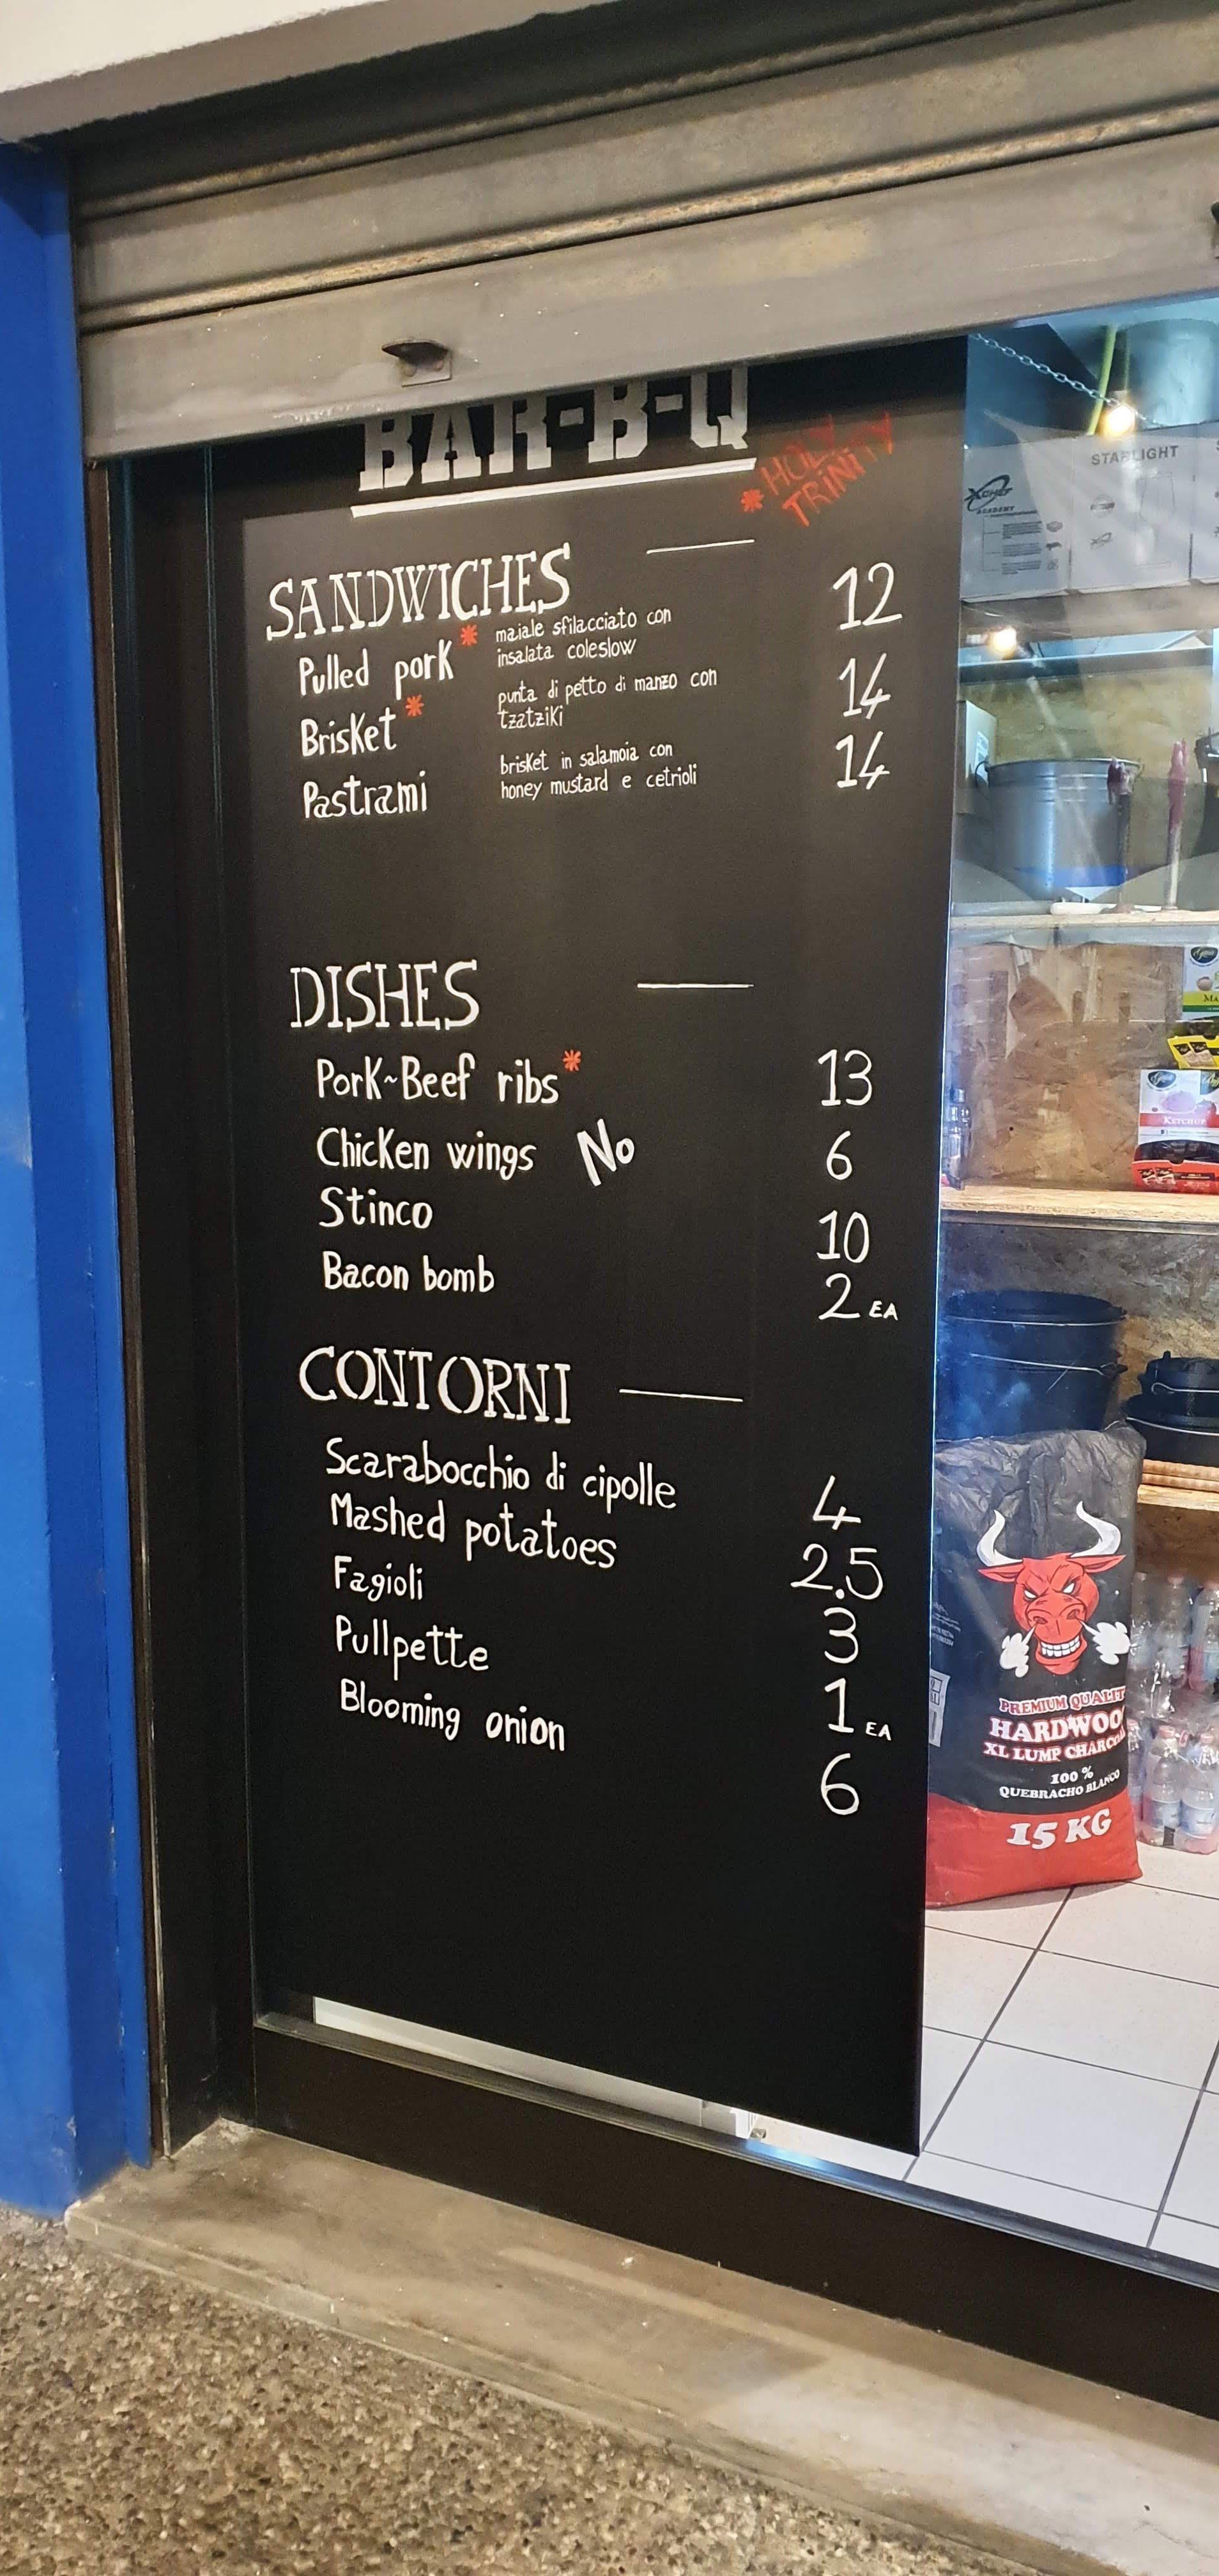 BAR-B-Q
* HOLY
TRINITY
SANDWICHES
Pulled pork * maiale sfilacciato con
insalata coleslow
12
Brisket * punta di petto di manzo con
tzatziki
14
Pastrami brisket in salamoia con
honey mustard e cetrioli
14
DISHES
Pork~Beef ribs * 13
Chicken wings No 6
Stinco 10
Bacon bomb 2 EA
CONTORNI
Scarabocchio di cipolle 4
Mashed potatoes 2.5
Fagioli 3
Pullpette 1 EA
Blooming onion 6
STARLIGHT
XCHEF
ACADEMY
KETCHUP
PREMIUM QUALIT
HARDWOO
XL LUMP CHARCO
100 %
QUEBRACHO BLANCO
15 KG